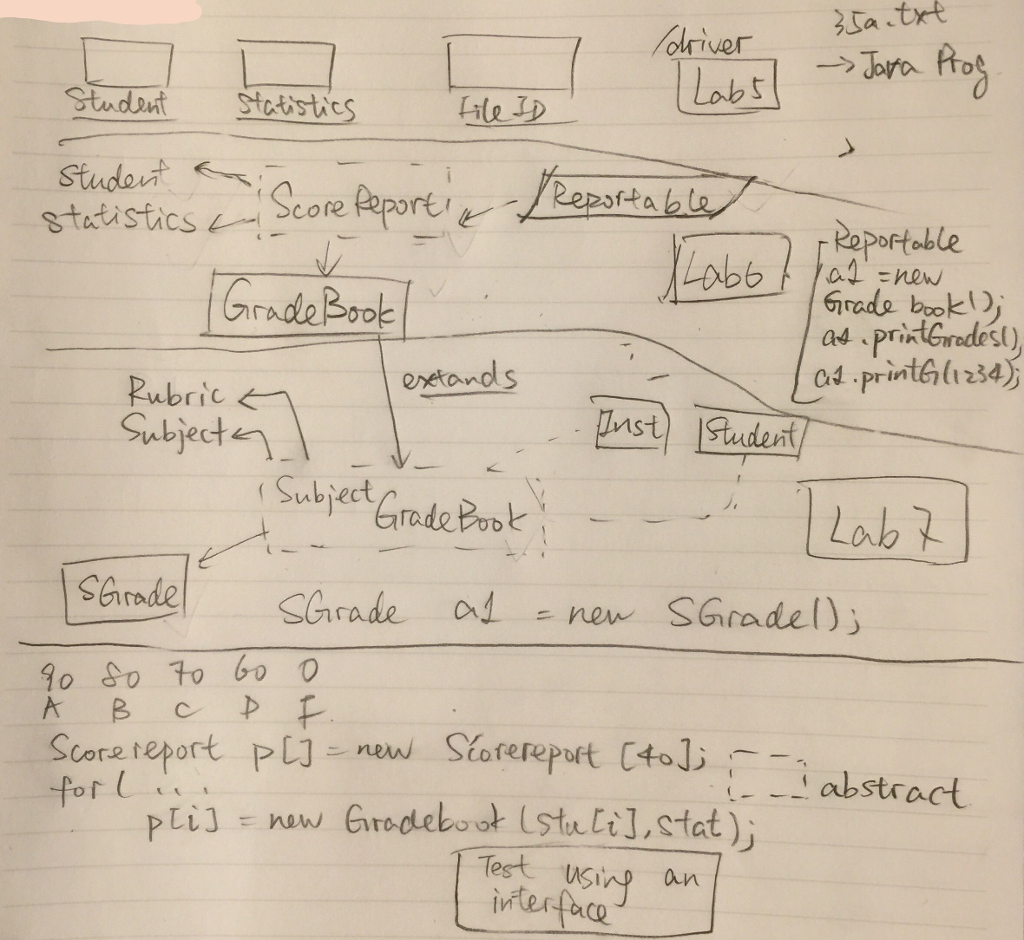 35a.txt
/driver
→ Java Prog
Lab5
Student
Statistics
File ID
Student
Statistics
ScoreReport
Reportable
Lab6
Reportable
a1 = new
Grade book();
a1.printGrades();
a1.printG(1234);
GradeBook
extands
Rubric
Subject
Inst
Student
Subject
GradeBook
Lab 7
SGrade
SGrade a1 = new SGrade();
90 80 70 60 0
A B C D F
Scorereport p[] = new Scorereport [40];
abstract
for( ...
p[i] = new Gradebook (stu[i], stat);
Test using an
interface